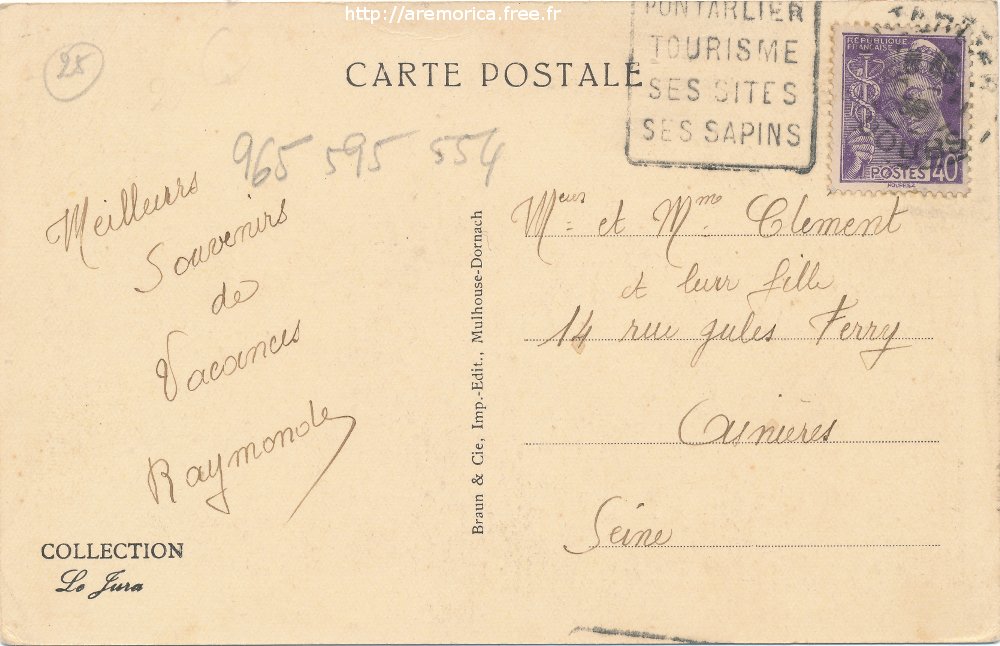 http://aremorica.free.fr
PONTARLIER
TOURISME
SES SITES
SES SAPINS
RÉPUBLIQUE
FRANÇAISE
POSTES 40
25
CARTE POSTALE
965 595 554
Meilleurs
Souvenirs
de
Vacances
Raymonde
COLLECTION
Le Jura
Braun & Cie, Imp.-Edit., Mulhouse-Dornach
Meurs et Mme Clement
et leur fille
14 rue Jules Ferry
Asnières
Seine